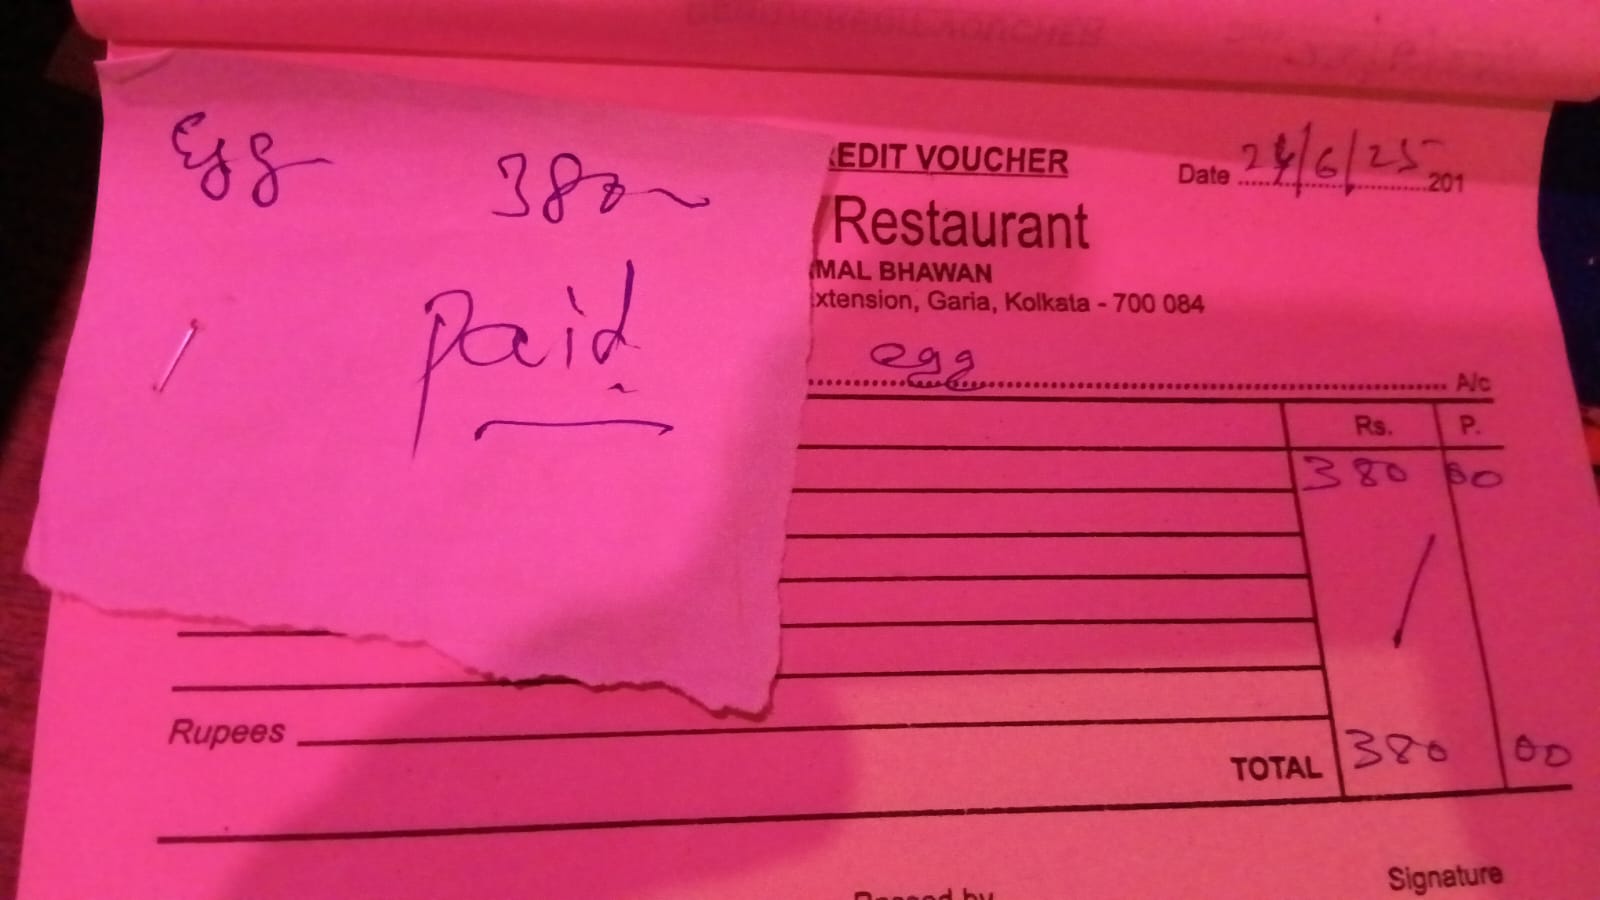 Egg 380
paid
EDIT VOUCHER
Date 24/6/25 201
Restaurant
MAL BHAWAN
xtension, Garia, Kolkata - 700 084
egg A/c
Rs. P.
380 00
Rupees
TOTAL 380 00
Signature